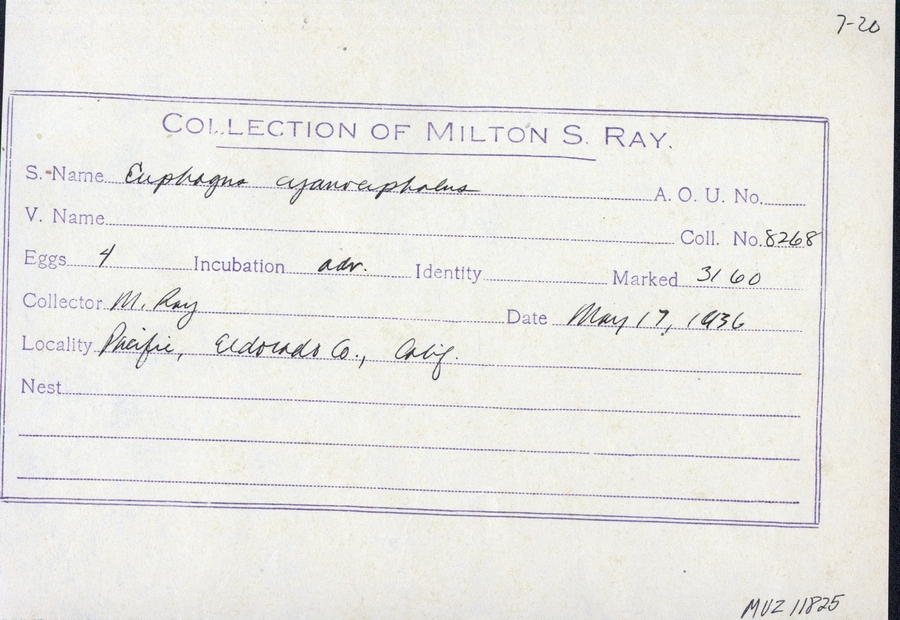 7-20
COLLECTION OF MILTON S. RAY.
S. Name Euphagus cyanocephalus A. O. U. No.
V. Name Coll. No. 8268
Eggs 4 Incubation adv. Identity Marked 3160
Collector M. Ray Date May 17, 1936
Locality Pacific, Eldorado Co., Calif.
Nest
MVZ 11825